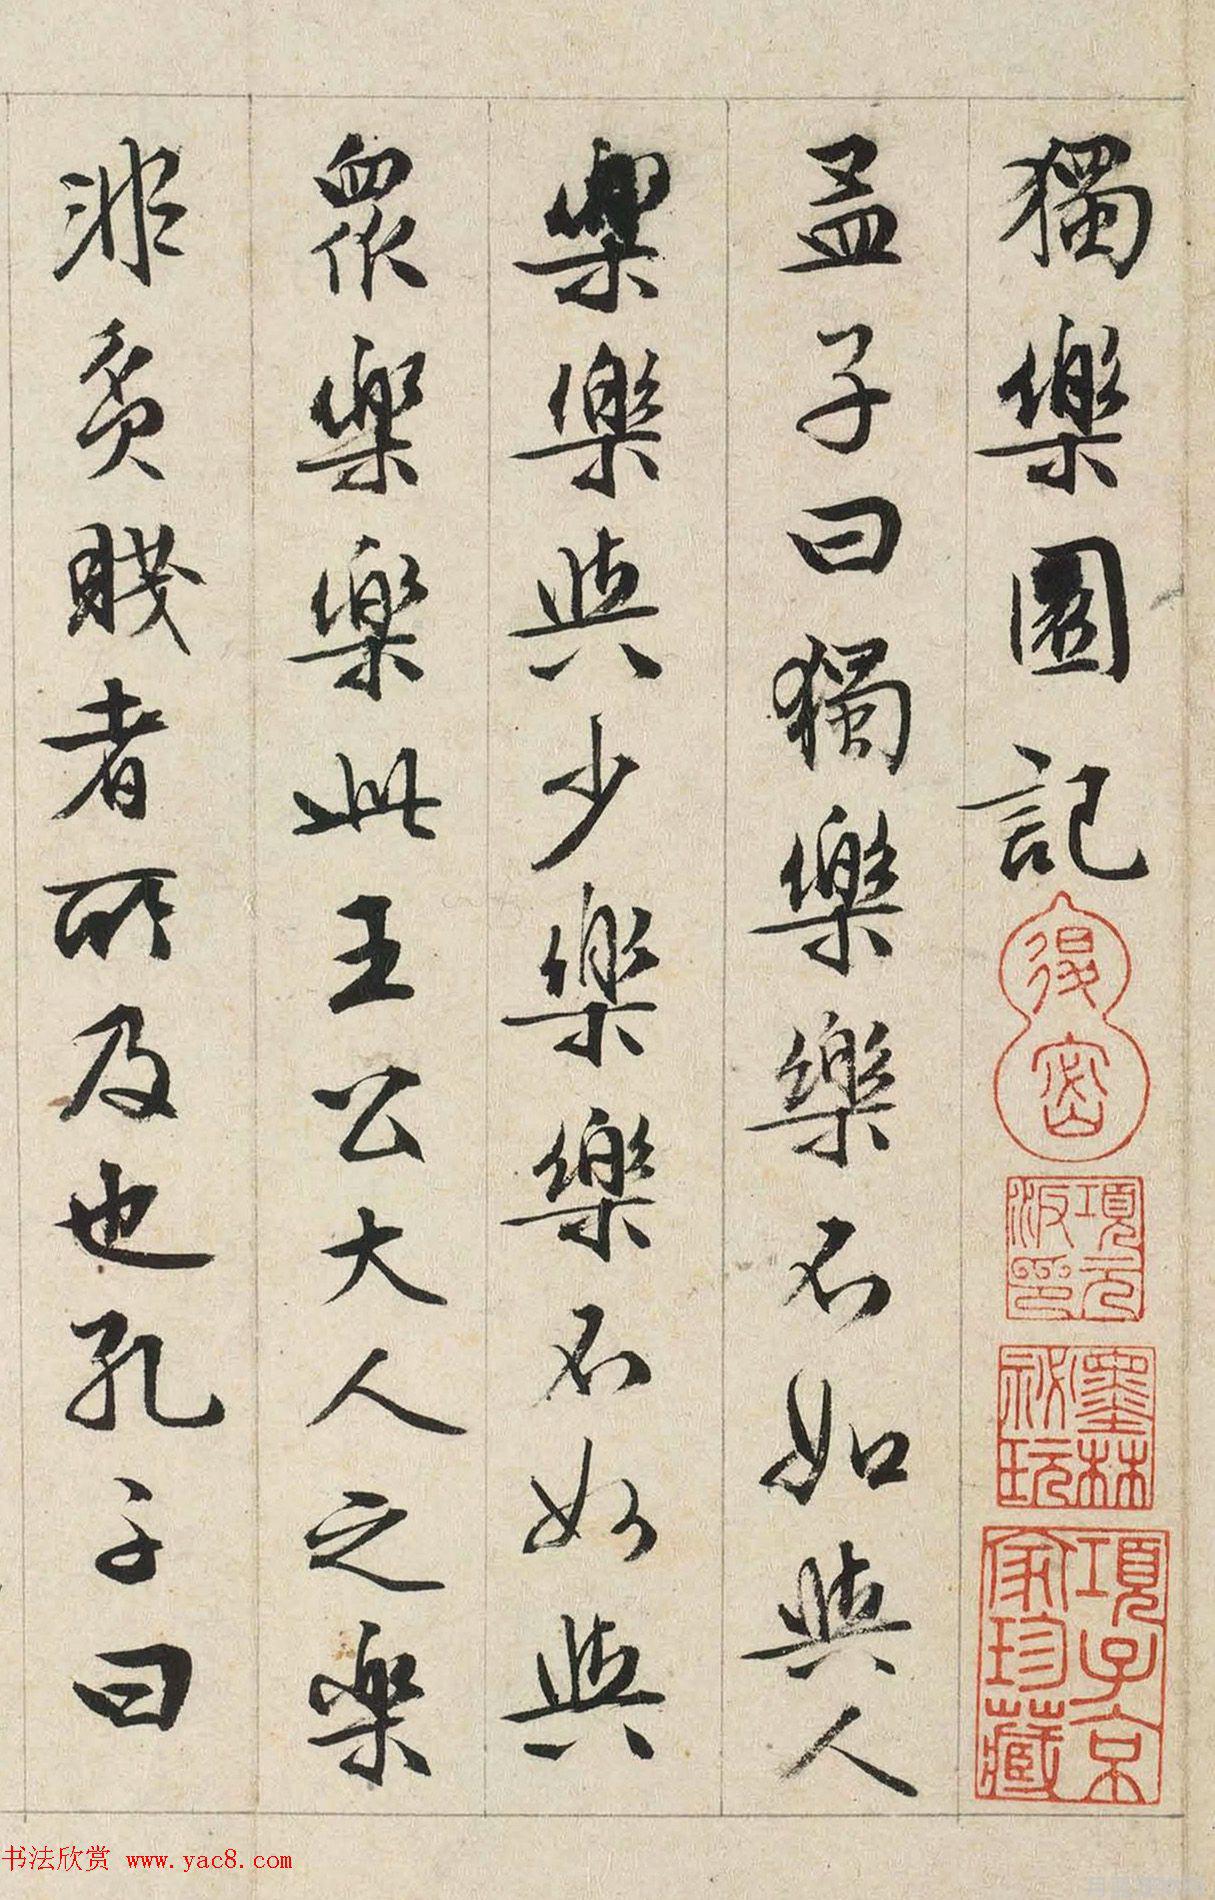 獨樂園記
孟子曰獨樂樂不如與人
樂樂與少樂樂不如與
眾樂樂此王公大人之樂
非貧賤者所及也孔子曰
項元汴印
墨林祕玩
項子京家珍藏
书法欣赏 www.yac8.com